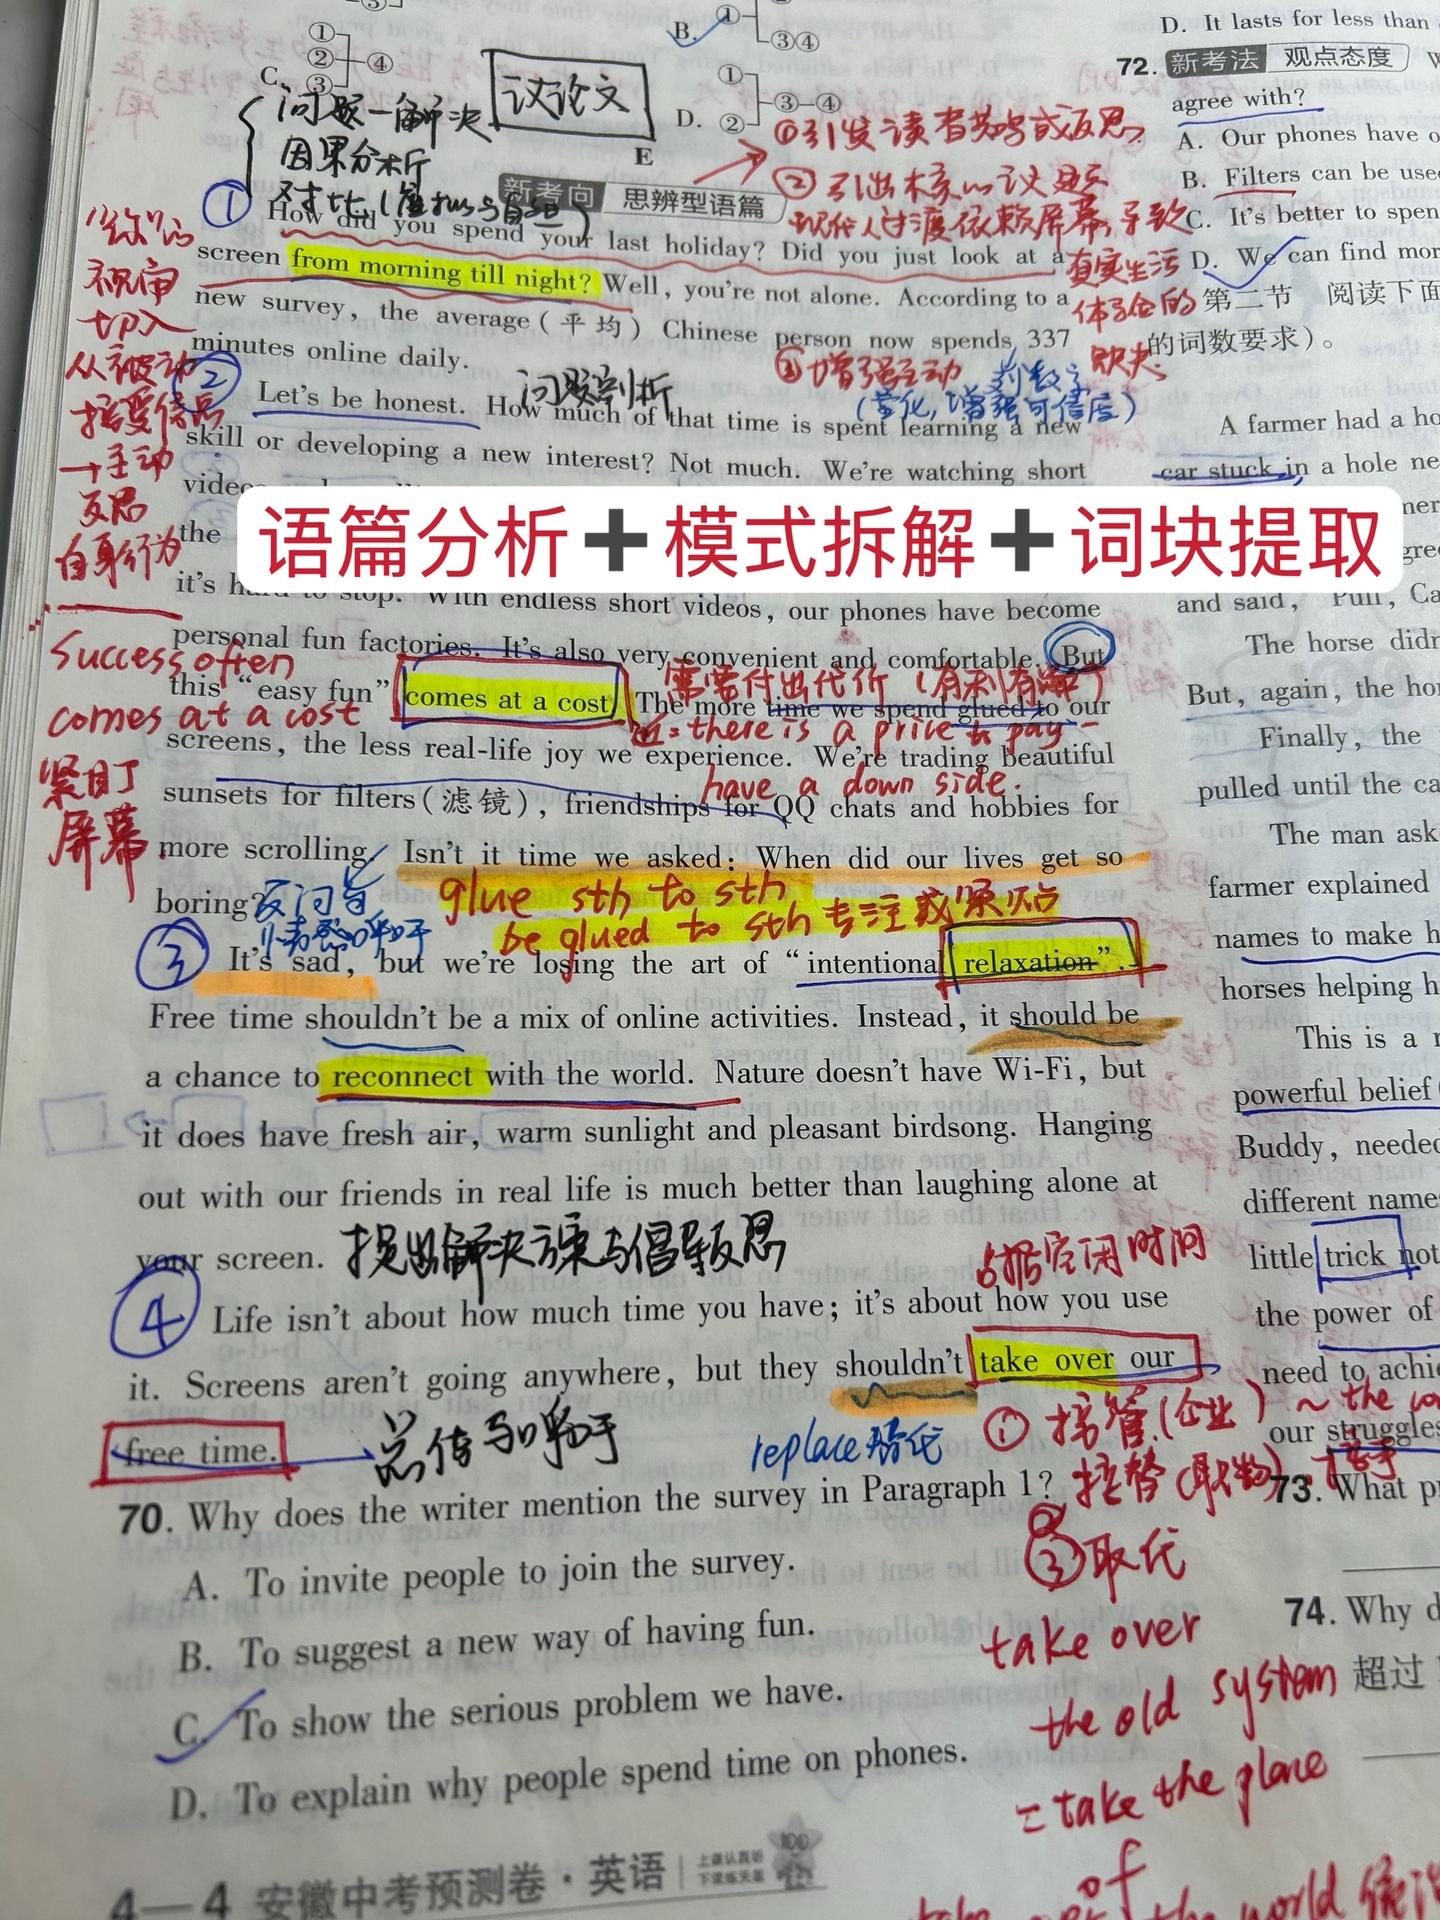 ③
①
②
④
C.
③
B.
①
③④
D.
①
②
③—④
问题—解决
因果分析
议论文
E
新考向 思辨型语篇
①引发读者共鸣或反思
②引出核心议题
现代人过渡依赖屏幕,导致
真实生活
体验的
缺失
③增强主动
列数字
(量化,增强可信度)
"你"的
视审
切入
从被动
接受信息
→主动
反思
自身行为
① How did you spend your last holiday? Did you just look at a
screen from morning till night? Well, you're not alone. According to a
new survey, the average(平均) Chinese person now spends 337
minutes online daily.
② Let's be honest. How much of that time is spent learning a new
问题剖析
skill or developing a new interest? Not much. We're watching short
the
语篇分析➕模式拆解➕词块提取
it's hard to stop. With endless short videos, our phones have become
personal fun factories. It's also very convenient and comfortable. But
this "easy fun" comes at a cost. The more time we spend glued to our
screens, the less real-life joy we experience. We're trading beautiful
sunsets for filters(滤镜), friendships for QQ chats and hobbies for
more scrolling. Isn't it time we asked: When did our lives get so
boring?
Success often
comes at a cost
紧盯
屏幕
需要付出代价(有利有弊)
近=there is a price to pay
have a down side.
反问句
情感呼吁
glue sth to sth
be glued to sth 专注或紧贴
③ It's sad, but we're losing the art of "intentional relaxation".
Free time shouldn't be a mix of online activities. Instead, it should be
a chance to reconnect with the world. Nature doesn't have Wi-Fi, but
it does have fresh air, warm sunlight and pleasant birdsong. Hanging
out with our friends in real life is much better than laughing alone at
your screen.
提出解决方案与倡导反思
占据空闲时间
④ Life isn't about how much time you have; it's about how you use
it. Screens aren't going anywhere, but they shouldn't take over our
free time.
总结与呼吁
replace 替代
①接管(企业) ~ the co
②接替(职务),接手
③取代
take over
the old system
=take the place
of
the world
70. Why does the writer mention the survey in Paragraph 1?
A. To invite people to join the survey.
B. To suggest a new way of having fun.
C. To show the serious problem we have.
D. To explain why people spend time on phones.
4—4 安徽中考预测卷·英语
上课认真听
下课练天星
100
D. It lasts for less than
72. 新考法 观点态度 W
agree with?
A. Our phones have
B. Filters can be use
C. It's better to spen
D. We can find mor
第二节 阅读下面
的词数要求)。
A farmer had a ho
car stuck in a hole ne
and said, "Pull, Ca
The horse didn
But, again, the ho
Finally, the
pulled until the ca
The man ask
farmer explained
names to make h
horses helping h
This is a r
powerful belief
Buddy, needed
different name
little trick not
the power of
need to achi
our struggles
73. What p
74. Why d
超过